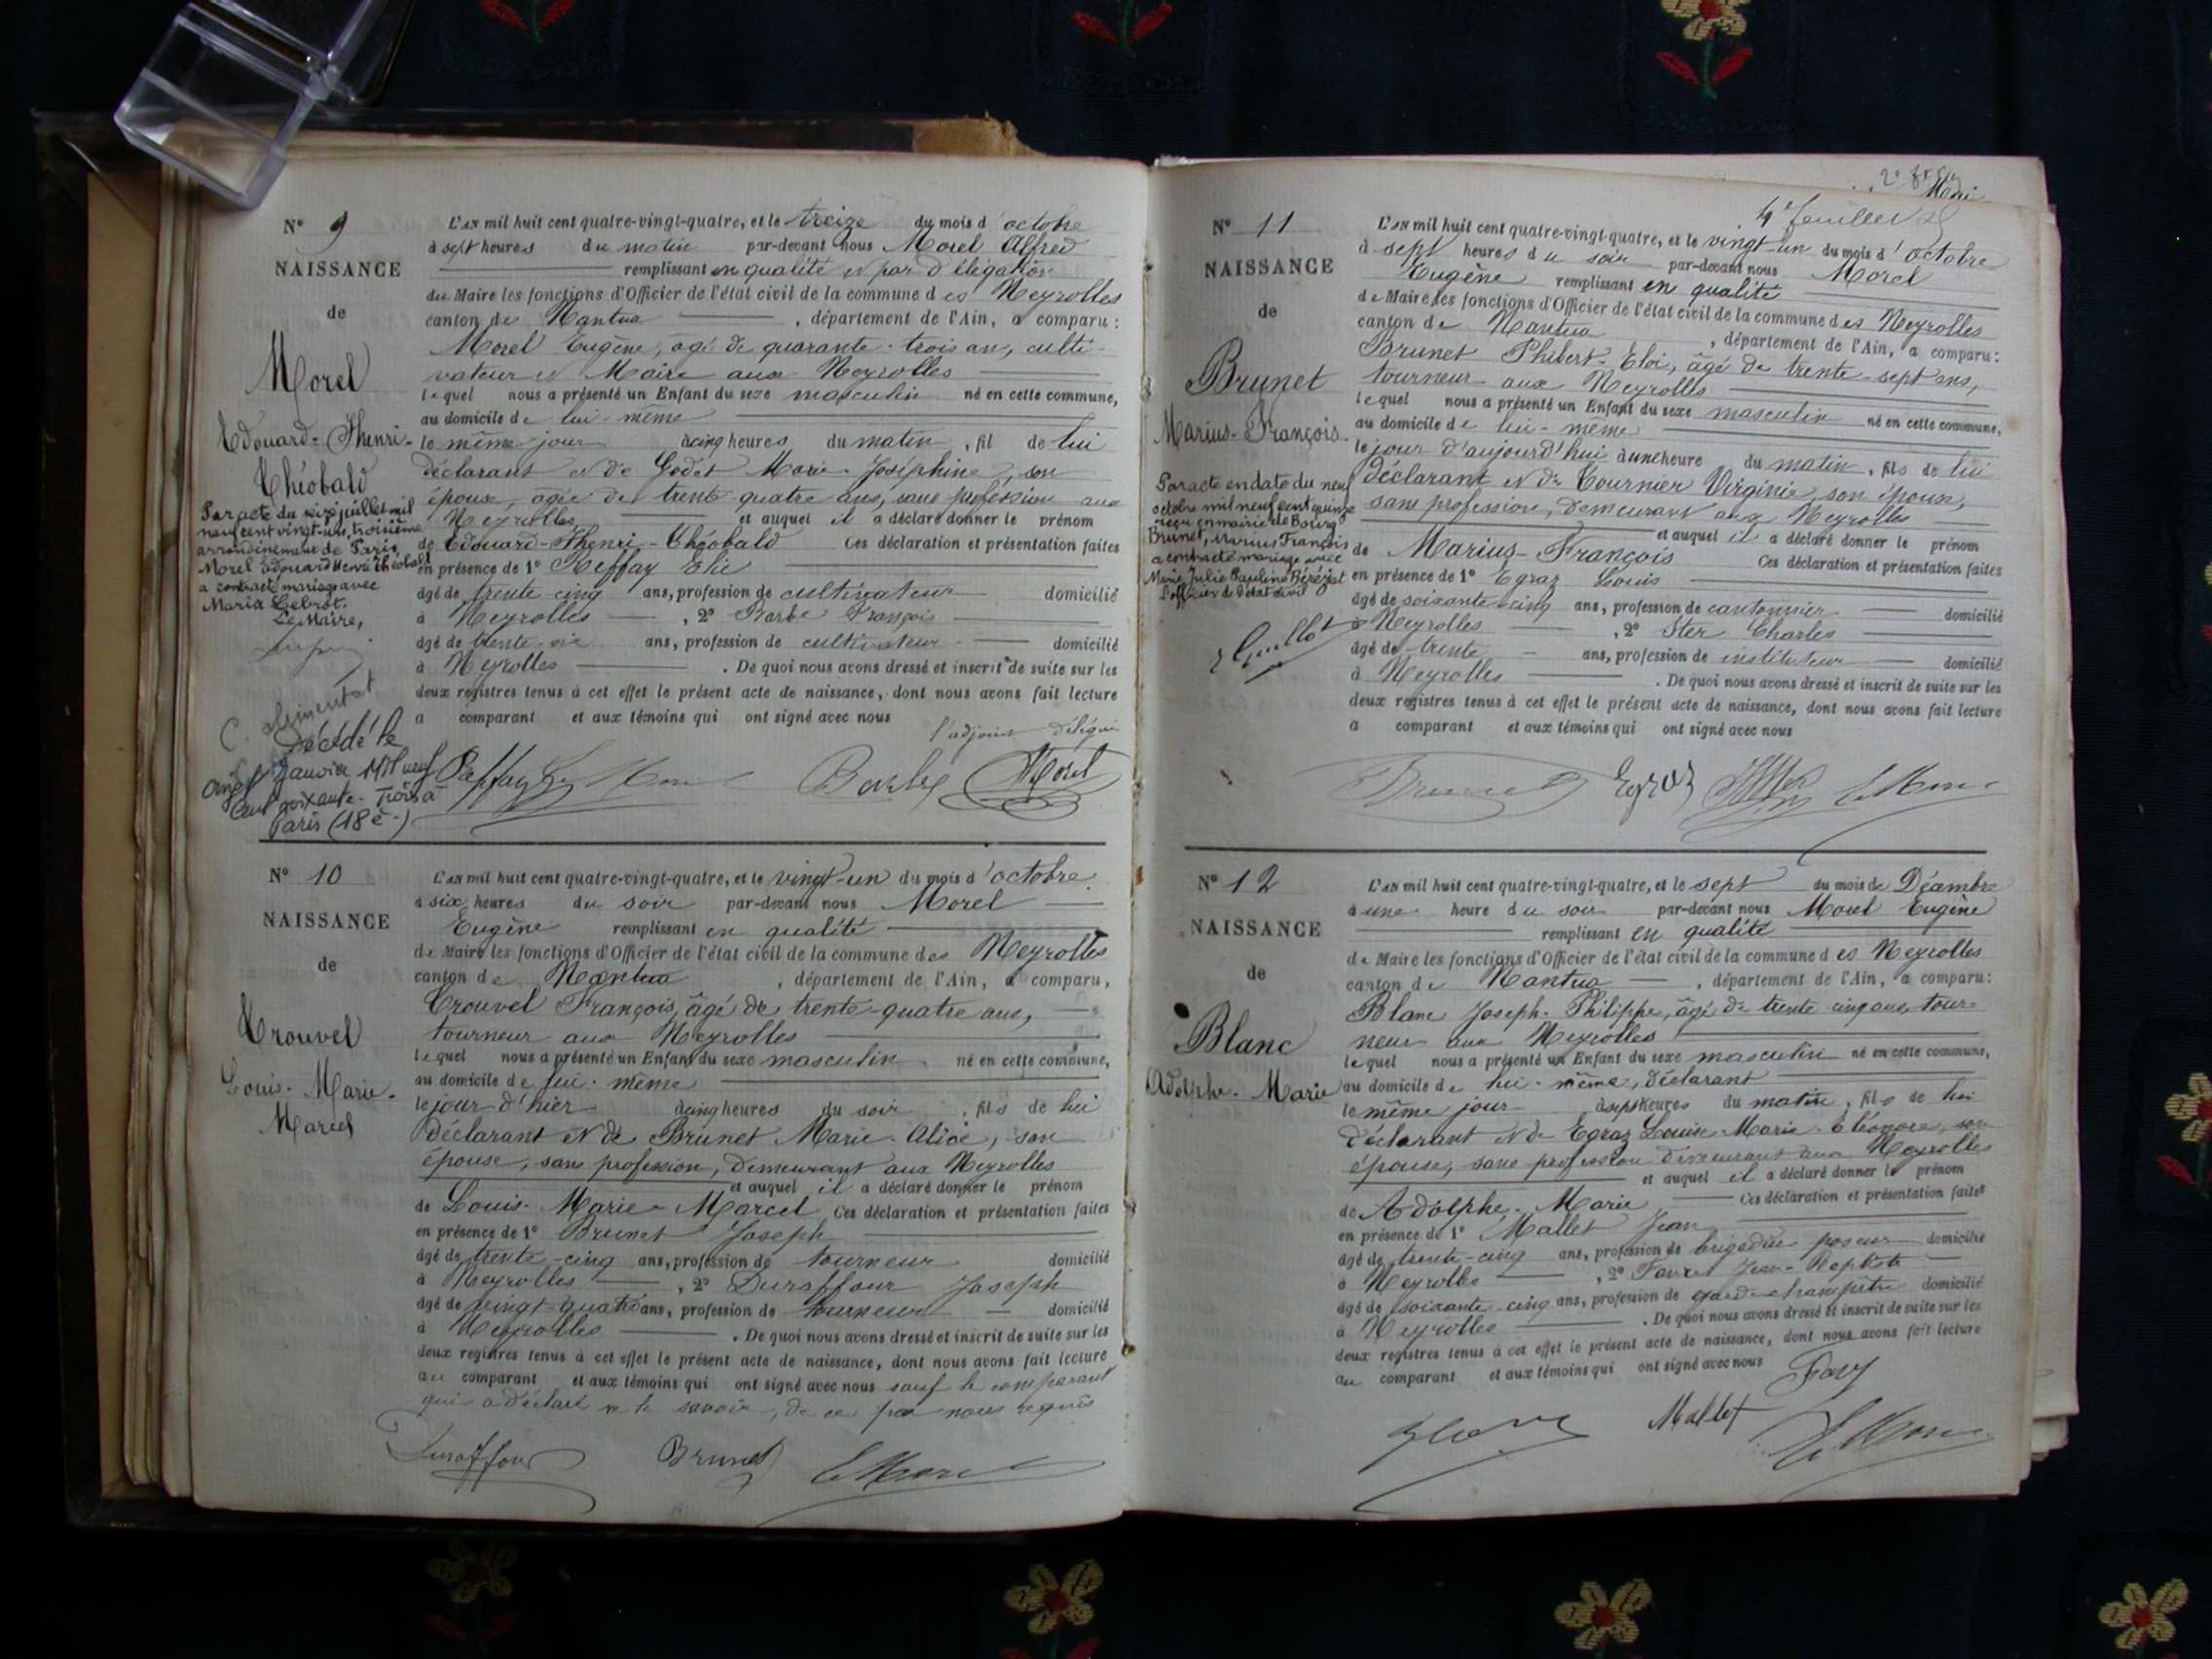 N° 9
NAISSANCE
de
Morel
Edouard-Thenri-
Théobald
Par acte du seize juillet mil
neuf cent vingt-un, troisième
arrondissement de Paris,
Morel Edouard Henri Théobald
a contracté mariage avec
Maria Lebrot.
Le Maire,
Décédé le
cinq Janvier Mil neuf
Cent soixante-Trois à
Paris (18è-)
L'AN mil huit cent quatre-vingt-quatre, et le treize du mois d'octobre
à sept heures du matin par-devant nous Morel Alfred
remplissant en qualité et par délégation
du Maire les fonctions d'Officier de l'état civil de la commune des Neyrolles
canton de Nantua, département de l'Ain, a comparu:
Morel Eugène, âgé de quarante-trois ans, culti-
vateur et Maire aux Neyrolles
lequel nous a présenté un Enfant du sexe masculin né en cette commune,
au domicile de lui-même
le même jour à cinq heures du matin, fil de lui
déclarant et de Godet Marie-Joséphine, son
épouse, âgée de trente-quatre ans, sans profession aux
Neyrolles et auquel il a déclaré donner le prénom
de Edouard-Thenri-Théobald Ces déclaration et présentation faites
en présence de 1° Reffay Elie
âgé de trente cinq ans, profession de cultivateur domicilié
à Neyrolles, 2° Barbe François
âgé de trente-six ans, profession de cultivateur domicilié
à Neyrolles. De quoi nous avons dressé et inscrit de suite sur les
deux registres tenus à cet effet le présent acte de naissance, dont nous avons fait lecture
a comparant et aux témoins qui ont signé avec nous
l'adjoint délégué
Barbe Morel
N° 10
NAISSANCE
de
Trouvel
Louis-Marie-
Marcel
L'AN mil huit cent quatre-vingt-quatre, et le vingt-un du mois d'octobre
à six heures du soir par-devant nous Morel
Eugène remplissant en qualité
de Maire les fonctions d'Officier de l'état civil de la commune des Neyrolles
canton de Nantua, département de l'Ain, a comparu,
Trouvel François, âgé de trente-quatre ans,
tourneur aux Neyrolles
lequel nous a présenté un Enfant du sexe masculin né en cette commune,
au domicile de lui-même
le jour d'hier à cinq heures du soir, fils de lui
déclarant et de Brunet Marie-Alice, son
épouse, sans profession, demeurant aux Neyrolles
et auquel il a déclaré donner le prénom
de Louis-Marie-Marcel Ces déclaration et présentation faites
en présence de 1° Brunet Joseph
âgé de trente-cinq ans, profession de tourneur domicilié
à Neyrolles, 2° Duraffour Joseph
âgé de vingt-quatre ans, profession de tourneur domicilié
à Neyrolles. De quoi nous avons dressé et inscrit de suite sur les
deux registres tenus à cet effet le présent acte de naissance, dont nous avons fait lecture
au comparant et aux témoins qui ont signé avec nous sauf le comparant
qui a déclaré ne le savoir, de ce par nous requis
Duraffour Brunet E Morel
4e feuillet
N° 11
NAISSANCE
de
Brunet
Marius-François
Par acte en date du neuf
octobre mil neuf cent quinze
reçu en mairie de Bourg
Brunet, Marius François
a contracté mariage avec
Marie Julie Pauline Bérézat
L'officier de l'état civil
Guillot
L'AN mil huit cent quatre-vingt-quatre, et le vingt-un du mois d'octobre
à sept heures du soir par-devant nous Morel
Eugène remplissant en qualité
de Maire les fonctions d'Officier de l'état civil de la commune des Neyrolles
canton de Nantua, département de l'Ain, a comparu:
Brunet Philbert-Eloi, âgé de trente-sept ans,
tourneur aux Neyrolles
lequel nous a présenté un Enfant du sexe masculin né en cette commune,
au domicile de lui-même
le jour d'aujourd'hui à une heure du matin, fils de lui
déclarant et de Tournier Virginie, son épouse,
sans profession, demeurant aux Neyrolles
et auquel il a déclaré donner le prénom
de Marius-François Ces déclaration et présentation faites
en présence de 1° Egraz Louis
âgé de soixante-cinq ans, profession de cantonnier domicilié
à Neyrolles, 2° Ster Charles
âgé de trente ans, profession de instituteur domicilié
à Neyrolles. De quoi nous avons dressé et inscrit de suite sur les
deux registres tenus à cet effet le présent acte de naissance, dont nous avons fait lecture
a comparant et aux témoins qui ont signé avec nous
Brunet Egraz
N° 12
NAISSANCE
de
Blanc
Adolphe-Marie
L'AN mil huit cent quatre-vingt-quatre, et le sept du mois de Décembre
à une heure du soir par-devant nous Morel Eugène
remplissant en qualité
de Maire les fonctions d'Officier de l'état civil de la commune des Neyrolles
canton de Nantua, département de l'Ain, a comparu:
Blanc Joseph-Philippe, âgé de trente cinq ans, tour-
neur aux Neyrolles
lequel nous a présenté un Enfant du sexe masculin né en cette commune,
au domicile de lui-même, déclarant
le même jour à sept heures du matin, fils de lui
déclarant et de Egraz Louise-Marie-Eléonore, son
épouse, sans profession demeurant aux Neyrolles
et auquel il a déclaré donner le prénom
de Adolphe-Marie Ces déclaration et présentation faites
en présence de 1° Mallet Jean
âgé de trente-cinq ans, profession de brigadier poseur domicilié
à Neyrolles, 2° Favre Jean-Baptiste
âgé de soixante-cinq ans, profession de garde-champêtre domicilié
à Neyrolles. De quoi nous avons dressé et inscrit de suite sur les
deux registres tenus à cet effet le présent acte de naissance, dont nous avons fait lecture
au comparant et aux témoins qui ont signé avec nous
Mallet